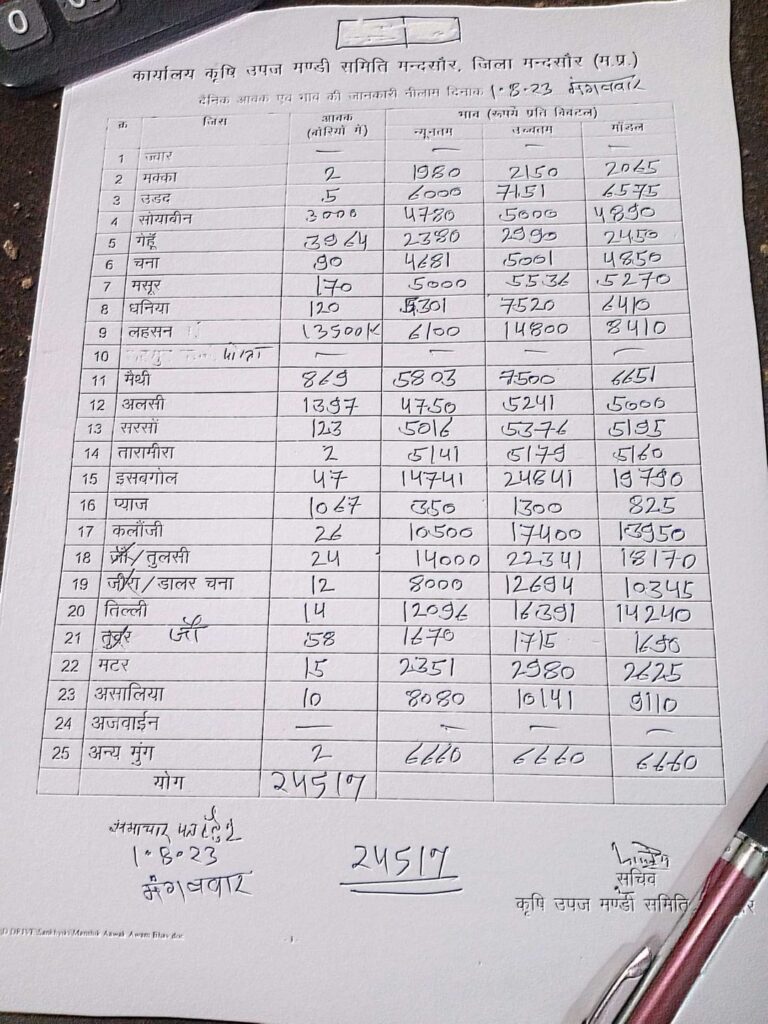 0
कार्यालय कृषि उपज मण्डी समिति मन्दसौर, जिला मन्दसौर (म.प्र.)
दैनिक आवक एवं भाव की जानकारी नीलाम दिनांक 1.8.23 मंगलवार
क्र जिंस आवक (बोरियों में) भाव (रूपये प्रति क्विंटल)
न्यूनतम उच्चतम मॉडल
1 ज्वार — — — —
2 मक्का 2 1980 2150 2065
3 उडद 5 6000 7151 6575
4 सोयाबीन 3000 4780 5000 4890
5 गेहूँ 3964 2380 2990 2450
6 चना 90 4681 5001 4850
7 मसूर 170 5000 5536 5270
8 धनिया 120 5301 7520 6410
9 लहसन 13500K 6100 14800 8410
10 — — — —
11 मैथी 869 5803 7500 6651
12 अलसी 1397 4750 5241 5000
13 सरसों 123 5016 5376 5195
14 तारामीरा 2 5141 5179 5160
15 इसबगोल 47 14741 24841 19790
16 प्याज 1067 350 1300 825
17 कलौंजी 26 10500 17400 13950
18 जौ/तुलसी 24 14000 22341 18170
19 जीरा/डालर चना 12 8000 12694 10345
20 तिल्ली 14 12096 16391 14240
21 तुवर जौ 58 1670 1715 1690
22 मटर 15 2351 2980 2625
23 असालिया 10 8080 10141 9110
24 अजवाईन — — — —
25 अन्य मुंग 2 6660 6660 6660
योग 24517
समाचार पत्र हेतु
1.8.23
मंगलवार
24517
सचिव
कृषि उपज मण्डी समिति
- 1 -